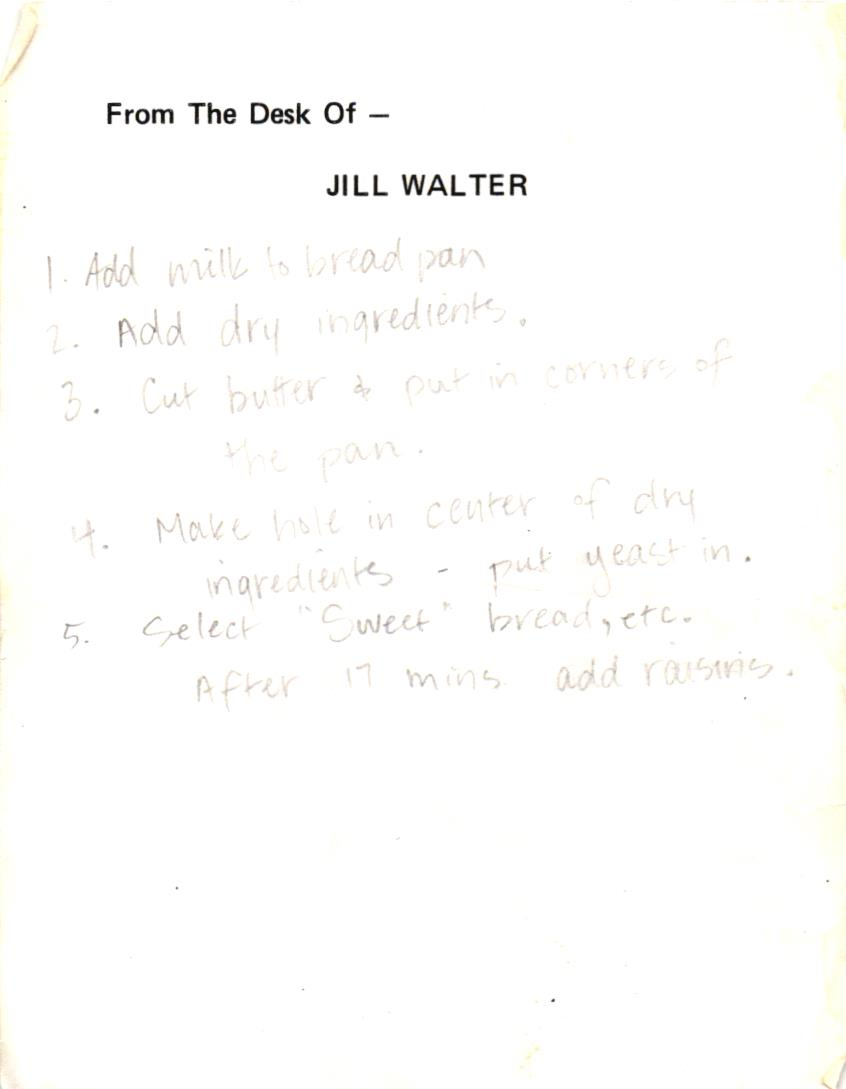 From The Desk Of —
JILL WALTER
1. Add milk to bread pan
2. Add dry ingredients.
3. Cut butter & put in corners of
the pan.
4. Make hole in center of dry
ingredients - put yeast in.
5. Select "Sweet" bread, etc.
After 17 mins add raisins.